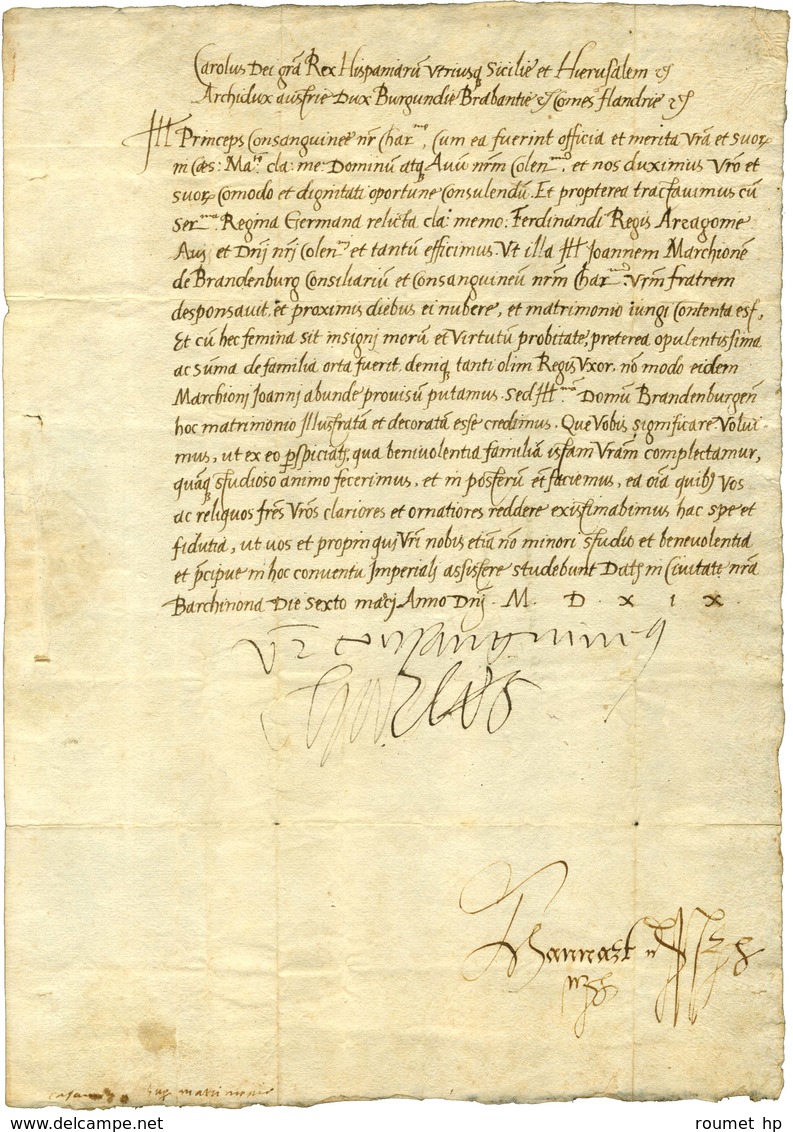 Carolus Dei gra Rex Hispaniarũ utriusq Sicilie et Hierusalem &c
Archidux austrie Dux Burgundie Brabantie &c Comes Flandrie &c
Ill Princeps Consanguinee nr Charmo, Cum ea fuerint officia et merita vra et suor
in Caes: Matem cla: me: Dominũ atq Avũ nrm Colenmo, et nos duximus vro et
suor comodo et dignitati oportune Consulendũ. Et propterea tractavimus cũ
Serma Regina Germana relicta cla: memo: Ferdinandi Regis Aragome
Avi et Dnj nrj Colenmi et tantũ efficimus. Ut illa Ill Joannem Marchionē
de Brandenburg Consiliariũ et Consanguineũ nrm Charmo. Vrm fratrem
desponsavit, et proximis diebus ei nubere, et matrimonio iungi Contenta est,
Et cũ hec femina sit insignj morũ et Virtutũ probitate, preterea opulentissima
ac sũma de familia orta fuerit, deniq, tanti olim Regis Vxor, nõ modo eidem
Marchioni Joannj abunde provisũ putamus. Sed Illma Domũ Brandenburgeñ
hoc matrimonio Illustratã et decoratã esse credimus. Que Vobis significare Volui-
mus, ut ex eo pspiciatis, qua benivolentia familiã istam Vram complectamur,
quãq studioso animo fecerimus, et in posterũ et faciemus, ea oia quibus Vos
ac reliquos fres Vros clariores et ornatiores reddere existimabimus hac spe et
fidutia, ut vos et propinqui Vri nobis etiã nõ minori studio et benevolentia
et pcipue in hoc conventu Imperiali assistere studebunt Datis in Civitate nra
Barchinona Die sexto marcij Anno Dnj. M. D. x i x.
Vr consanguineus
Charles
Hannart
matrimonio
roumet hp